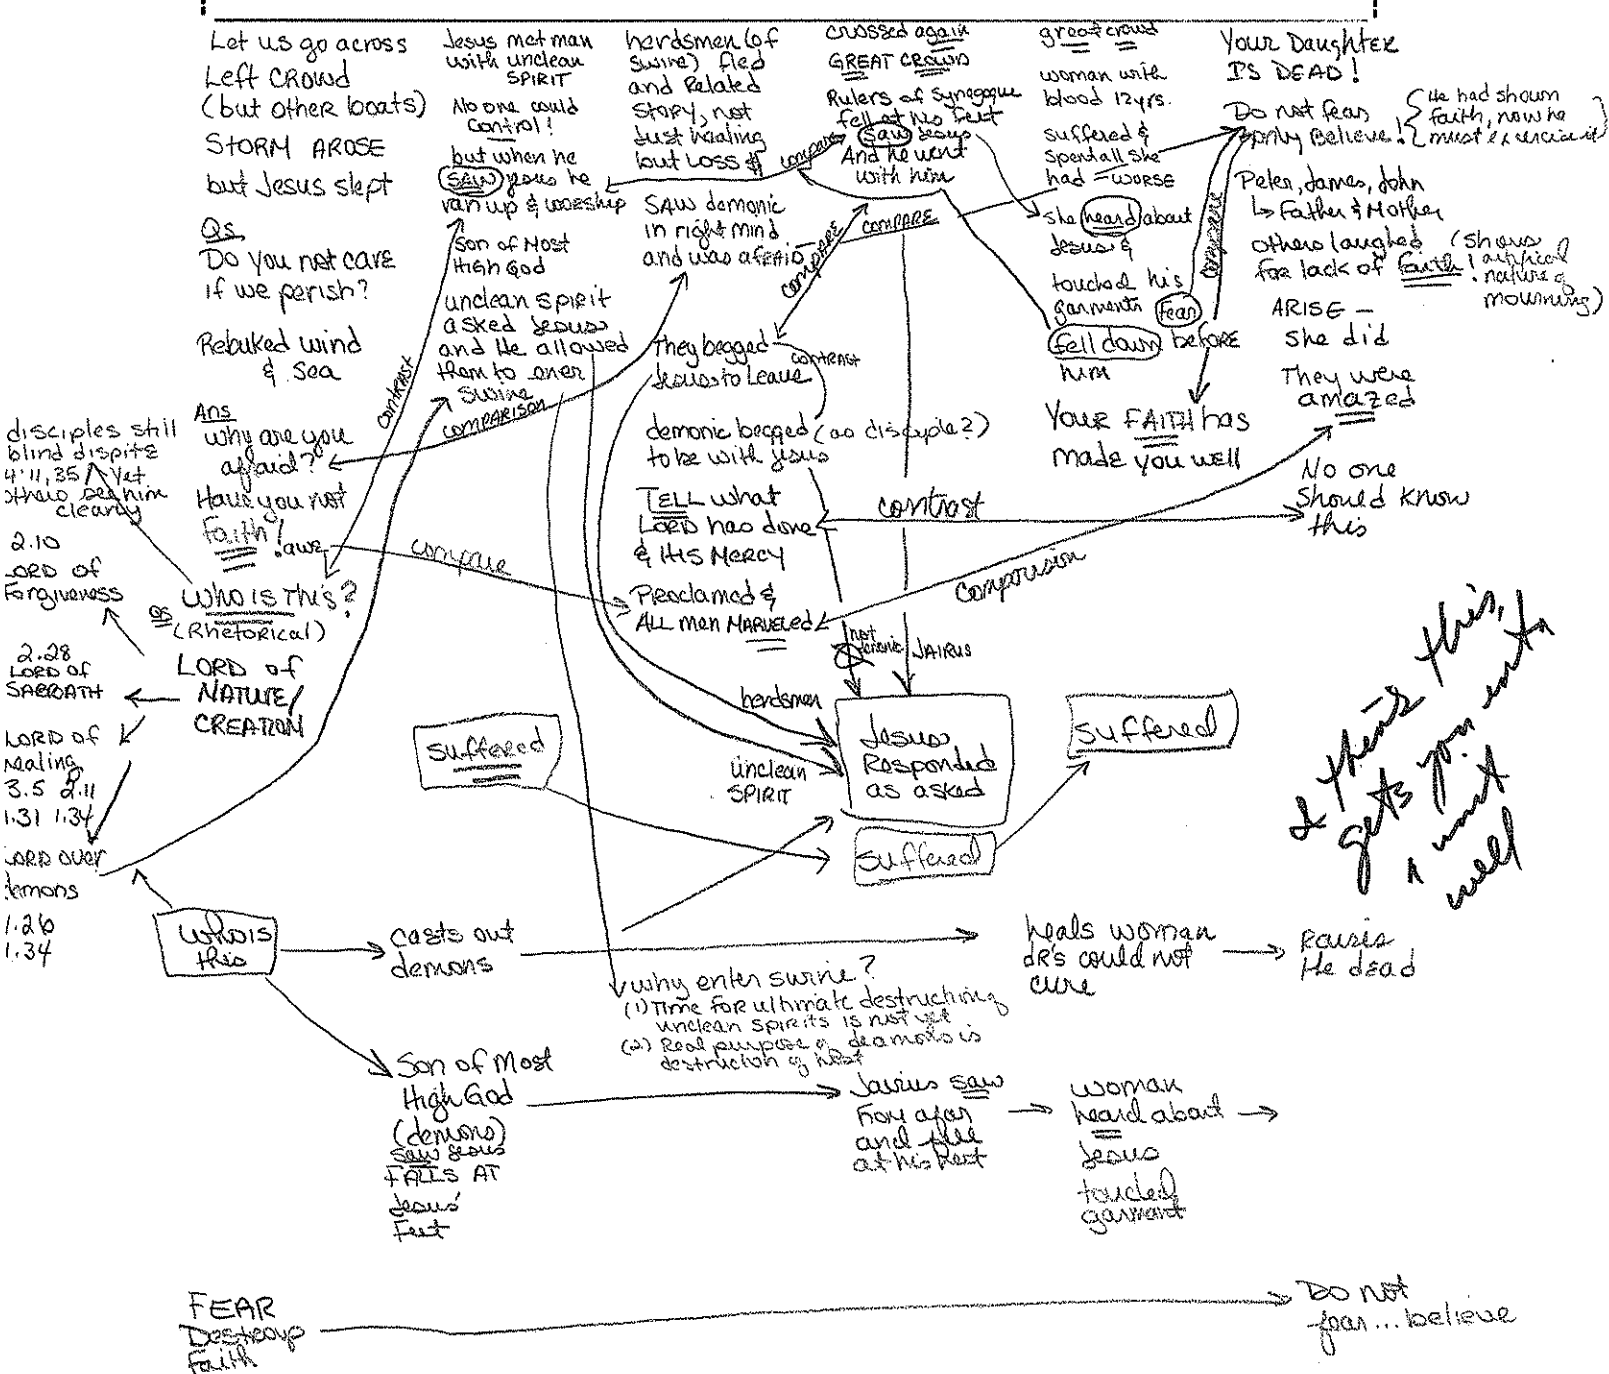 Let us go across
Left CROWD
(but other boats)
STORM AROSE
but Jesus slept
Qs
Do you not care
if we perish?
Rebuked wind
& Sea
Ans
why are you
afraid?
Have you not
Faith!
awe
Who is This?
Qs
(Rhetorical)
LORD of
NATURE/
CREATION
disciples still
blind dispite
4:11, 35 Yet
others see him
clearly
2.10
LORD OF
Forgiveness
2.28
LORD OF
SABBATH
LORD OF
healing
3.5 2.11
1.31 1.34
LORD over
demons
1.26
1.34
Jesus met man
with unclean
SPIRIT
No one could
Control!
but when he
SAW Jesus he
ran up & worship
Son of Most
High God
unclean SPIRIT
asked Jesus
and He allowed
them to ener
swine
contrast
COMPARISON
herdsmen (of
swine) fled
and Related
STORY, not
Just healing
but LOSS $
SAW demonic
in right mind
and was afraid
They begged
Jesus to Leave
contrast
demonic begged (as disciple?)
to be with Jesus
TELL what
LORD has done
& HIS MERCY
Proclamed &
ALL men MARVELED
compare
crossed again
GREAT CROWD
Rulers of Synagogue
fell at his feet
Saw Jesus
And he went
with him
compare
COMPARE
COMPARE
great crowd
woman with
blood 12yrs.
suffered &
spent all she
had = worse
she heard about
Jesus &
touched his
garments fear
fell down before
him
Your FAITH has
made you well
compare
Your Daughter
IS DEAD!
Do not fear
only Believe!
He had shown
faith, now he
must exercise it
Peter, James, John
Father & Mother
others laughed
for lack of faith!
(shows
artificial
nature of
mourning)
ARISE –
she did
They were
amazed
No one
Should know
this
contrast
Comparision
not
demonic
JAIRUS
herdsmen
unclean
SPIRIT
Jesus
Responded
as asked
suffered
suffered
suffered
I think this,
gets you into
it
well
who is
this
casts out
demons
heals woman
dR's could not
cure
Raises
the dead
why enter swine?
(1) Time for ultimate destruching
unclean spirits is not yet
(2) Real purpose of deamons is
destruction of host
Son of Most
High God
(demons)
saw Jesus
FALLS AT
Jesus'
Feet
Jairius saw
from afar
and fell
at his feet
woman
heard about
Jesus
touched
garment
FEAR
Destroys
Faith
Do not
fear... believe